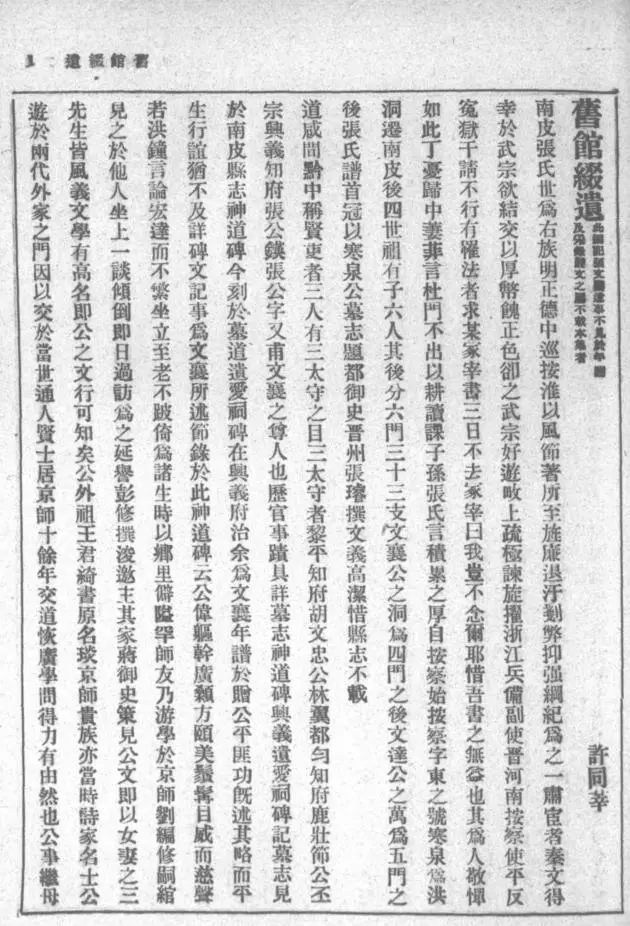 舊館綴遺 一
舊館綴遺
遺事不見於年譜
詩文之屬不載本集者
許同莘
南皮張氏世爲右族明正德中巡按淮以風節著所至旌廉退汙剗弊抑强綱紀爲之一肅宦者秦文得
幸於武宗欲結交以厚幣餽正色卻之武宗好遊畋上疏極諫旋擢浙江兵備副使晋河南按察使平反
寃獄干請不行有罹法者求某冢宰書三日不去冢宰曰我豈不念爾耶惜吾書之無益也其爲人敬憚
如此丁憂歸中萋菲言杜門不出以耕讀課子孫張氏言積累之厚自按察始按察字東之號寒泉爲洪
洞遷南皮後四世祖有子六人其後分六門三十三支文襄公之洞爲四門之後文達公之萬爲五門之
後張氏譜首冠以寒泉公墓志題都御史晋州張璿撰文義高潔惜縣志不載
道咸間黔中稱賢吏者三人有三太守之目三太守者黎平知府胡文忠公林翼都勻知府鹿壯節公丕
宗興義知府張公鍈張公字又甫文襄之尊人也歷官事蹟具詳墓志神道碑興義遺愛祠碑記墓志見
於南皮縣志神道碑今刻於墓道遺愛祠碑在興義府治余爲文襄年譜於贈公平匪功旣述其略而平
生行誼猶不及詳碑文記事爲文襄所述節錄於此神道碑云公偉軀幹廣顙方頤美鬚髯目威而慈聲
若洪鐘言論宏達而不繁坐立至老不跛倚爲諸生時以鄉里僻隘罕師友乃游學於京師劉編修嗣綰
見之於他人坐上一談傾倒卽日過訪爲之延譽彭修撰浚邀主其家蔣御史策見公文卽以女妻之三
先生皆風義文學有高名卽公之文行可知矣公外祖王君綺書原名琰京師貴族亦當時詩家名士公
遊於兩代外家之門因以交於當世通人賢士居京師十餘年交道恢廣學問得力有由然也公事繼母